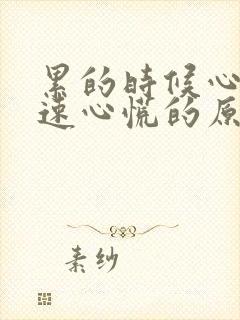 累的時候心
速心慌的原
素紗